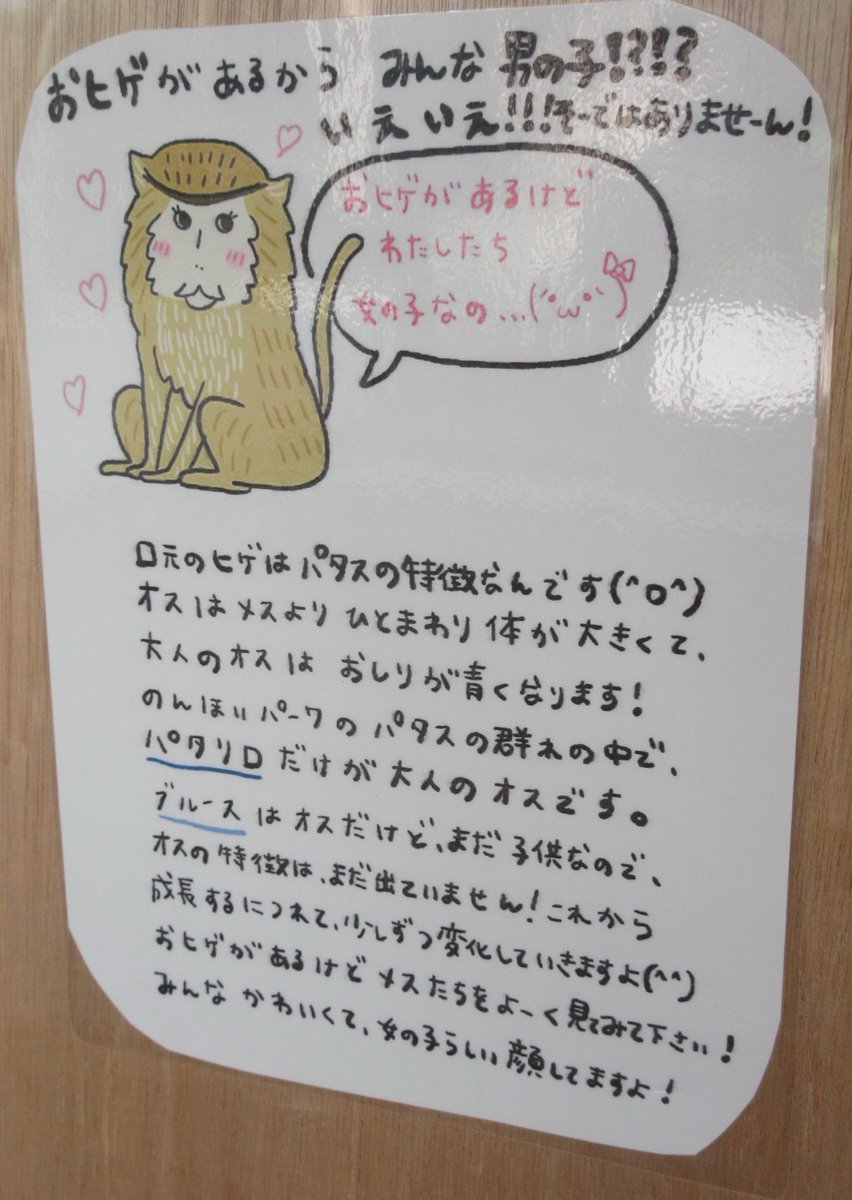 おヒゲがあるから みんな男の子!?!?
いえいえ!!!そーではありませーん!
おヒゲがあるけど
わたしたち
女の子なの...(´°ω°`)
口元のヒゲはパタスの特徴なんです(^o^)
オスはメスより ひとまわり 体が 大きくて、
大人のオスは おしりが青くなります!
のんほいパークの パタスの群れの中で、
パタリロだけが大人のオスです。
ブルースはオスだけど、まだ 子供なので、
オスの特徴は、まだ出ていません!これから
成長するにつれて、少しずつ変化していきますよ(^^)
おヒゲがあるけど メスたちをよーく見てみて下さい!
みんな かわいくて、女の子らしい顔してますよ!